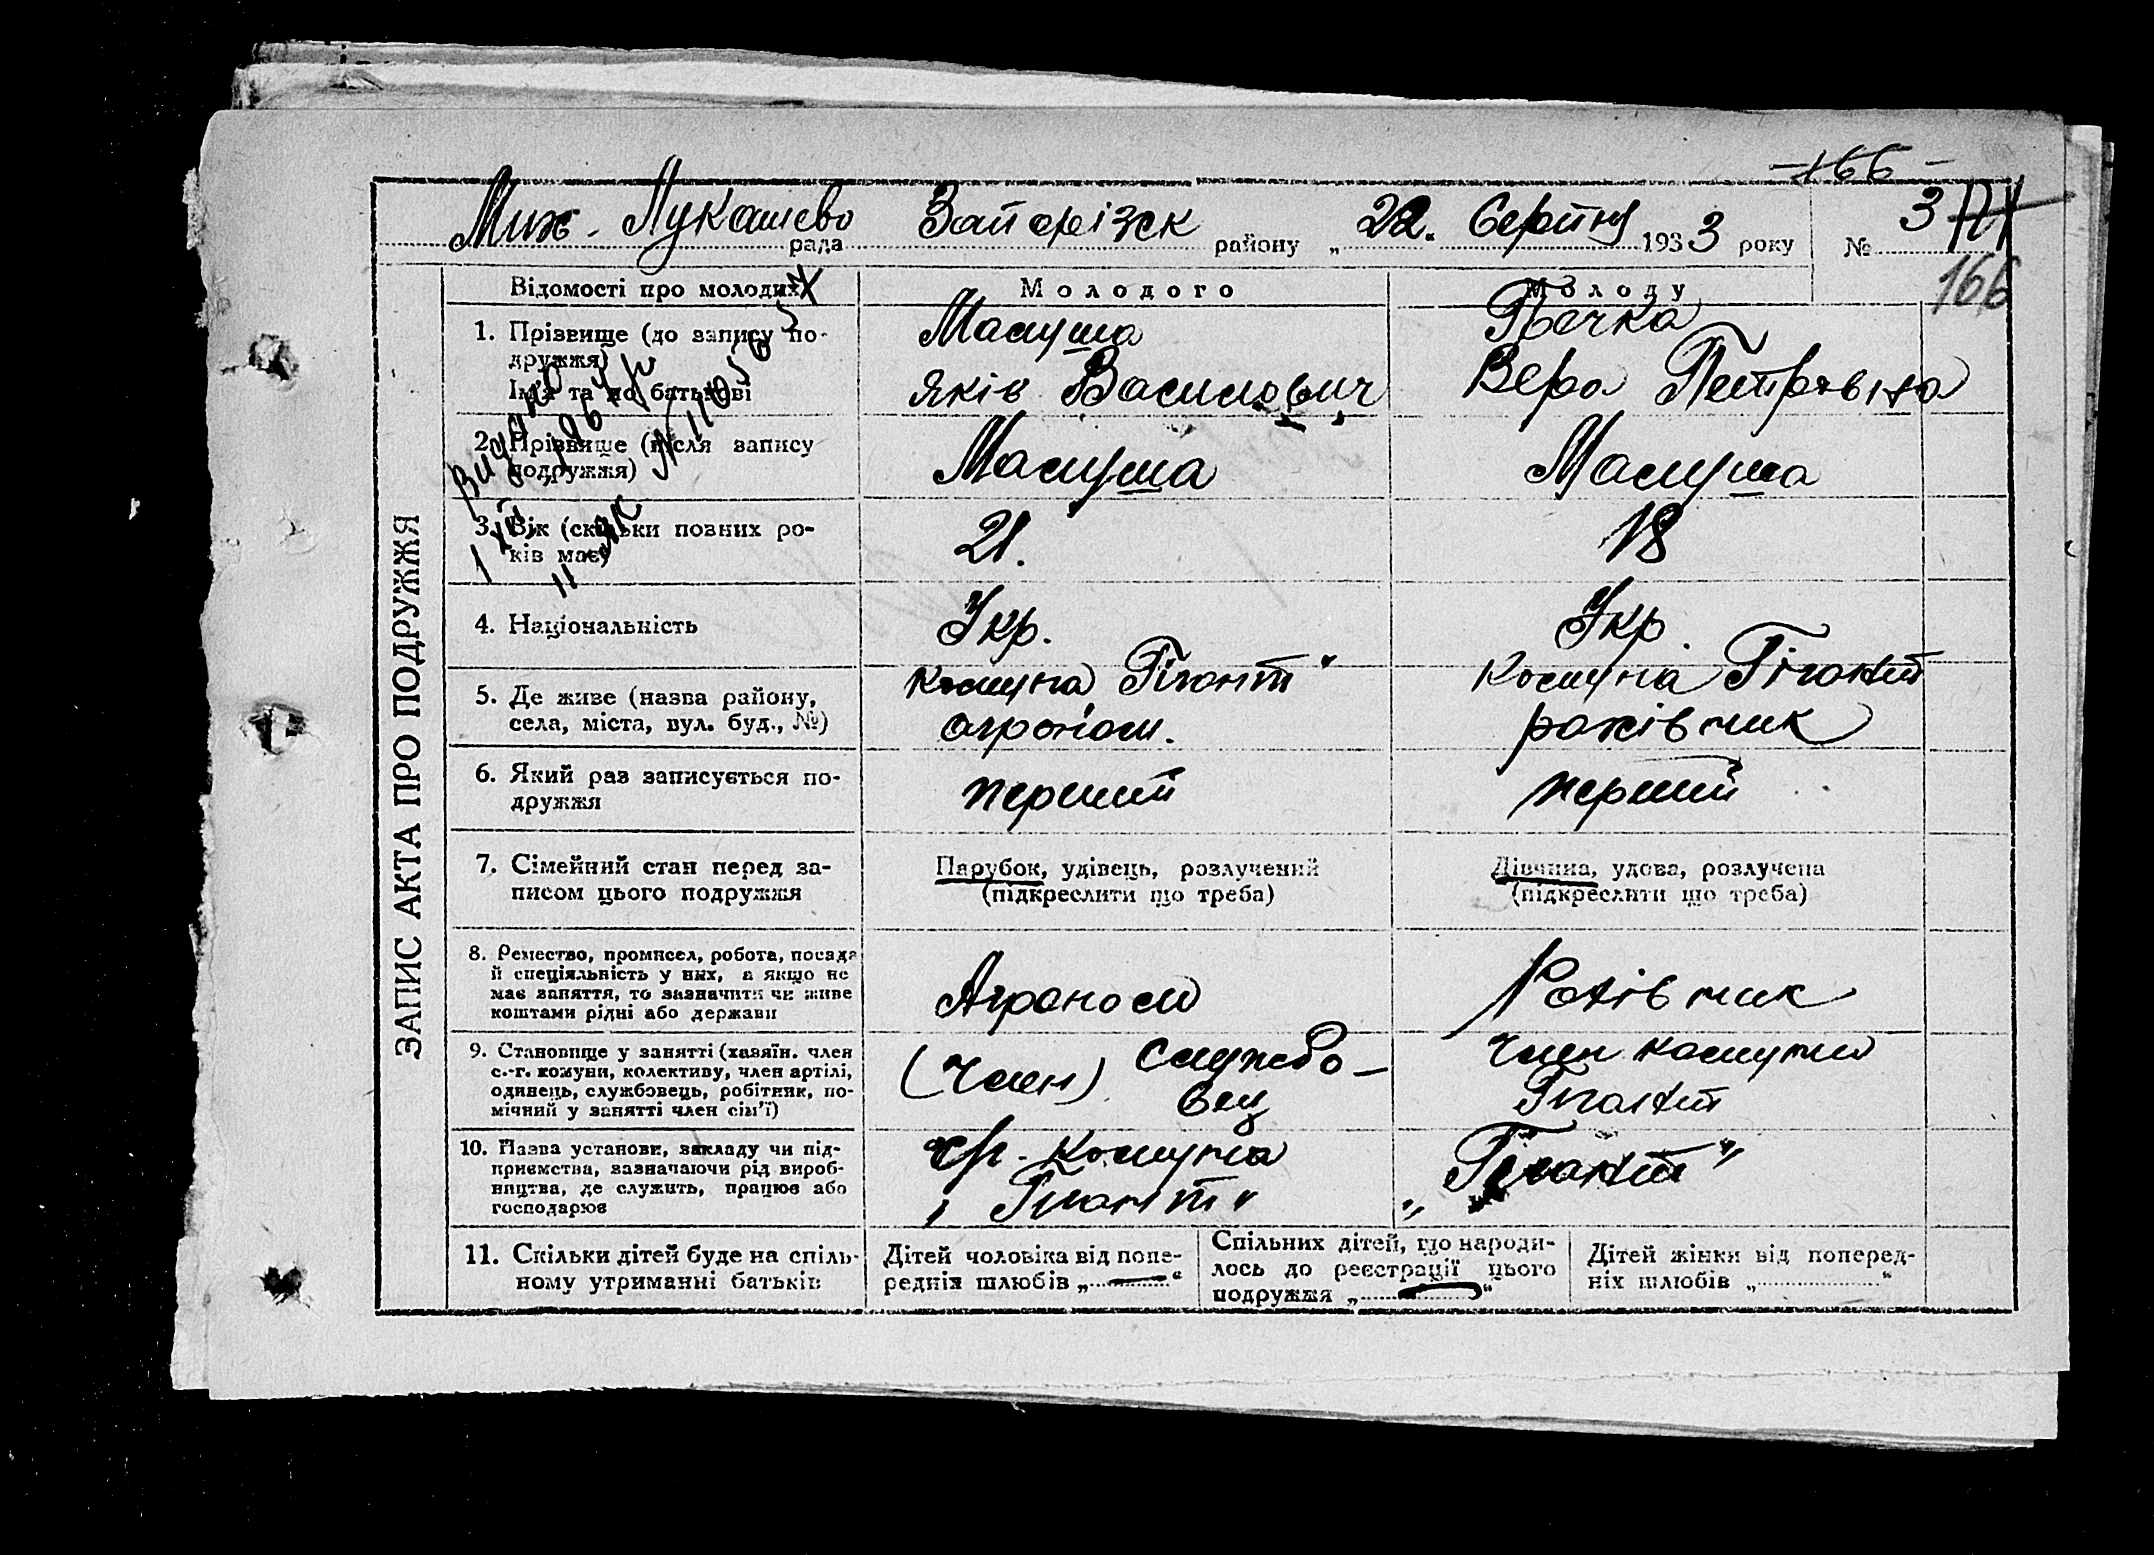 166
Мих. Лукашево рада Запорізск району „22. Серпня 1933 року № 3
166
ЗАПИС АКТА ПРО ПОДРУЖЖЯ
Відомості про молодих
Молодого
Молоду
1. Прізвище (до запису по-
дружжя)
Ім'я та по батькові
Мамуша
Яків Васильович
Печка
Вера Петрівна
2. Прізвище (після запису
подружжя)
Мамуша
Мамуша
3. Вік (скільки повних ро-
ків має)
21.
18
4. Національність
Укр.
Укр.
5. Де живе (назва району,
села, міста, вул. буд., №)
комуна Гігант"
агроном.
Комуна Гігант
рахівник
6. Який раз записується по-
дружжя
перший
перший
7. Сімейний стан перед за-
писом цього подружжя
Парубок, удівець, розлучений
(підкреслити що треба)
Дівчина, удова, розлучена
(підкреслити що треба)
8. Ремество, промисел, робота, посада
й спеціяльність у них, а якщо не
має заняття, то зазначити чи живе
коштами рідні або держави
Агроном
Рахівник
9. Становище у занятті (хазяїн. член
с.-г. комуни, колективу, член артілі,
одинець, службовець, робітник, по-
мічний у занятті член сім'ї)
(Член) службо-
вец
Член комуни
Гігант
10. Назва установи, закладу чи під-
приємства, зазначаючи рід вироб-
ництва, де служить, працює або
господарює
с/г. комуна
„Гігант"
„Гігант"
11. Скільки дітей буде на спіль-
ному утриманні батьків
Дітей чоловіка від попе-
редніх шлюбів „ — "
Спільних дітей, що народи-
лось до реєстрації цього
подружжя „ — "
Дітей жінки від поперед-
ніх шлюбів „ "
Видано